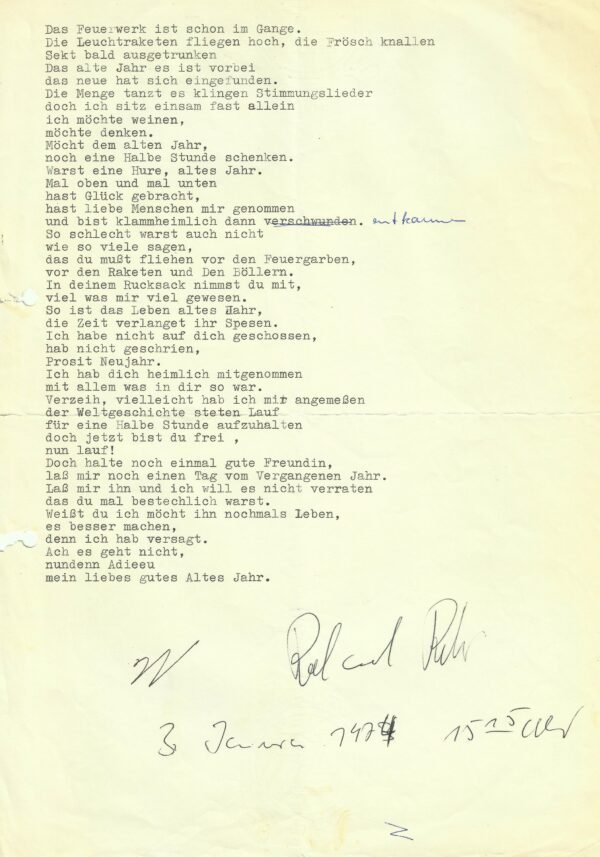 Das Feuerwerk ist schon im Gange.
Die Leuchtraketen fliegen hoch, die Frösch knallen
Sekt bald ausgetrunken
Das alte Jahr es ist vorbei
das neue hat sich eingefunden.
Die Menge tanzt es klingen Stimmungslieder
doch ich sitz einsam fast allein
ich möchte weinen,
möchte denken.
Möcht dem alten Jahr,
noch eine Halbe Stunde schenken.
Warst eine Hure, altes Jahr.
Mal oben und mal unten
hast Glück gebracht,
hast liebe Menschen mir genommen
und bist klammheimlich dann verschwunden. entkommen
So schlecht warst auch nicht
wie so viele sagen,
das du mußt fliehen vor den Feuergarben,
vor den Raketen und Den Böllern.
In deinem Rucksack nimmst du mit,
viel was mir viel gewesen.
So ist das Leben altes Hahr,
die Zeit verlanget ihr Spesen.
Ich habe nicht auf dich geschossen,
hab nicht geschrien,
Prosit Neujahr.
Ich hab dich heimlich mitgenommen
mit allem was in dir so war.
Verzeih, vielleicht hab ich mir angemeßen
der Weltgeschichte steten Lauf
für eine Halbe Stunde aufzuhalten
doch jetzt bist du frei ,
nun lauf!
Doch halte noch einmal gute Freundin,
laß mir noch einen Tag vom Vergangenen Jahr.
Laß mir ihn und ich will es nicht verraten
das du mal bestechlich warst.
Weißt du ich möcht ihn nochmals Leben,
es besser machen,
denn ich hab versagt.
Ach es geht nicht,
nundenn Adieeu
mein liebes gutes Altes Jahr.
3 Januar 1974 15 15 Uhr